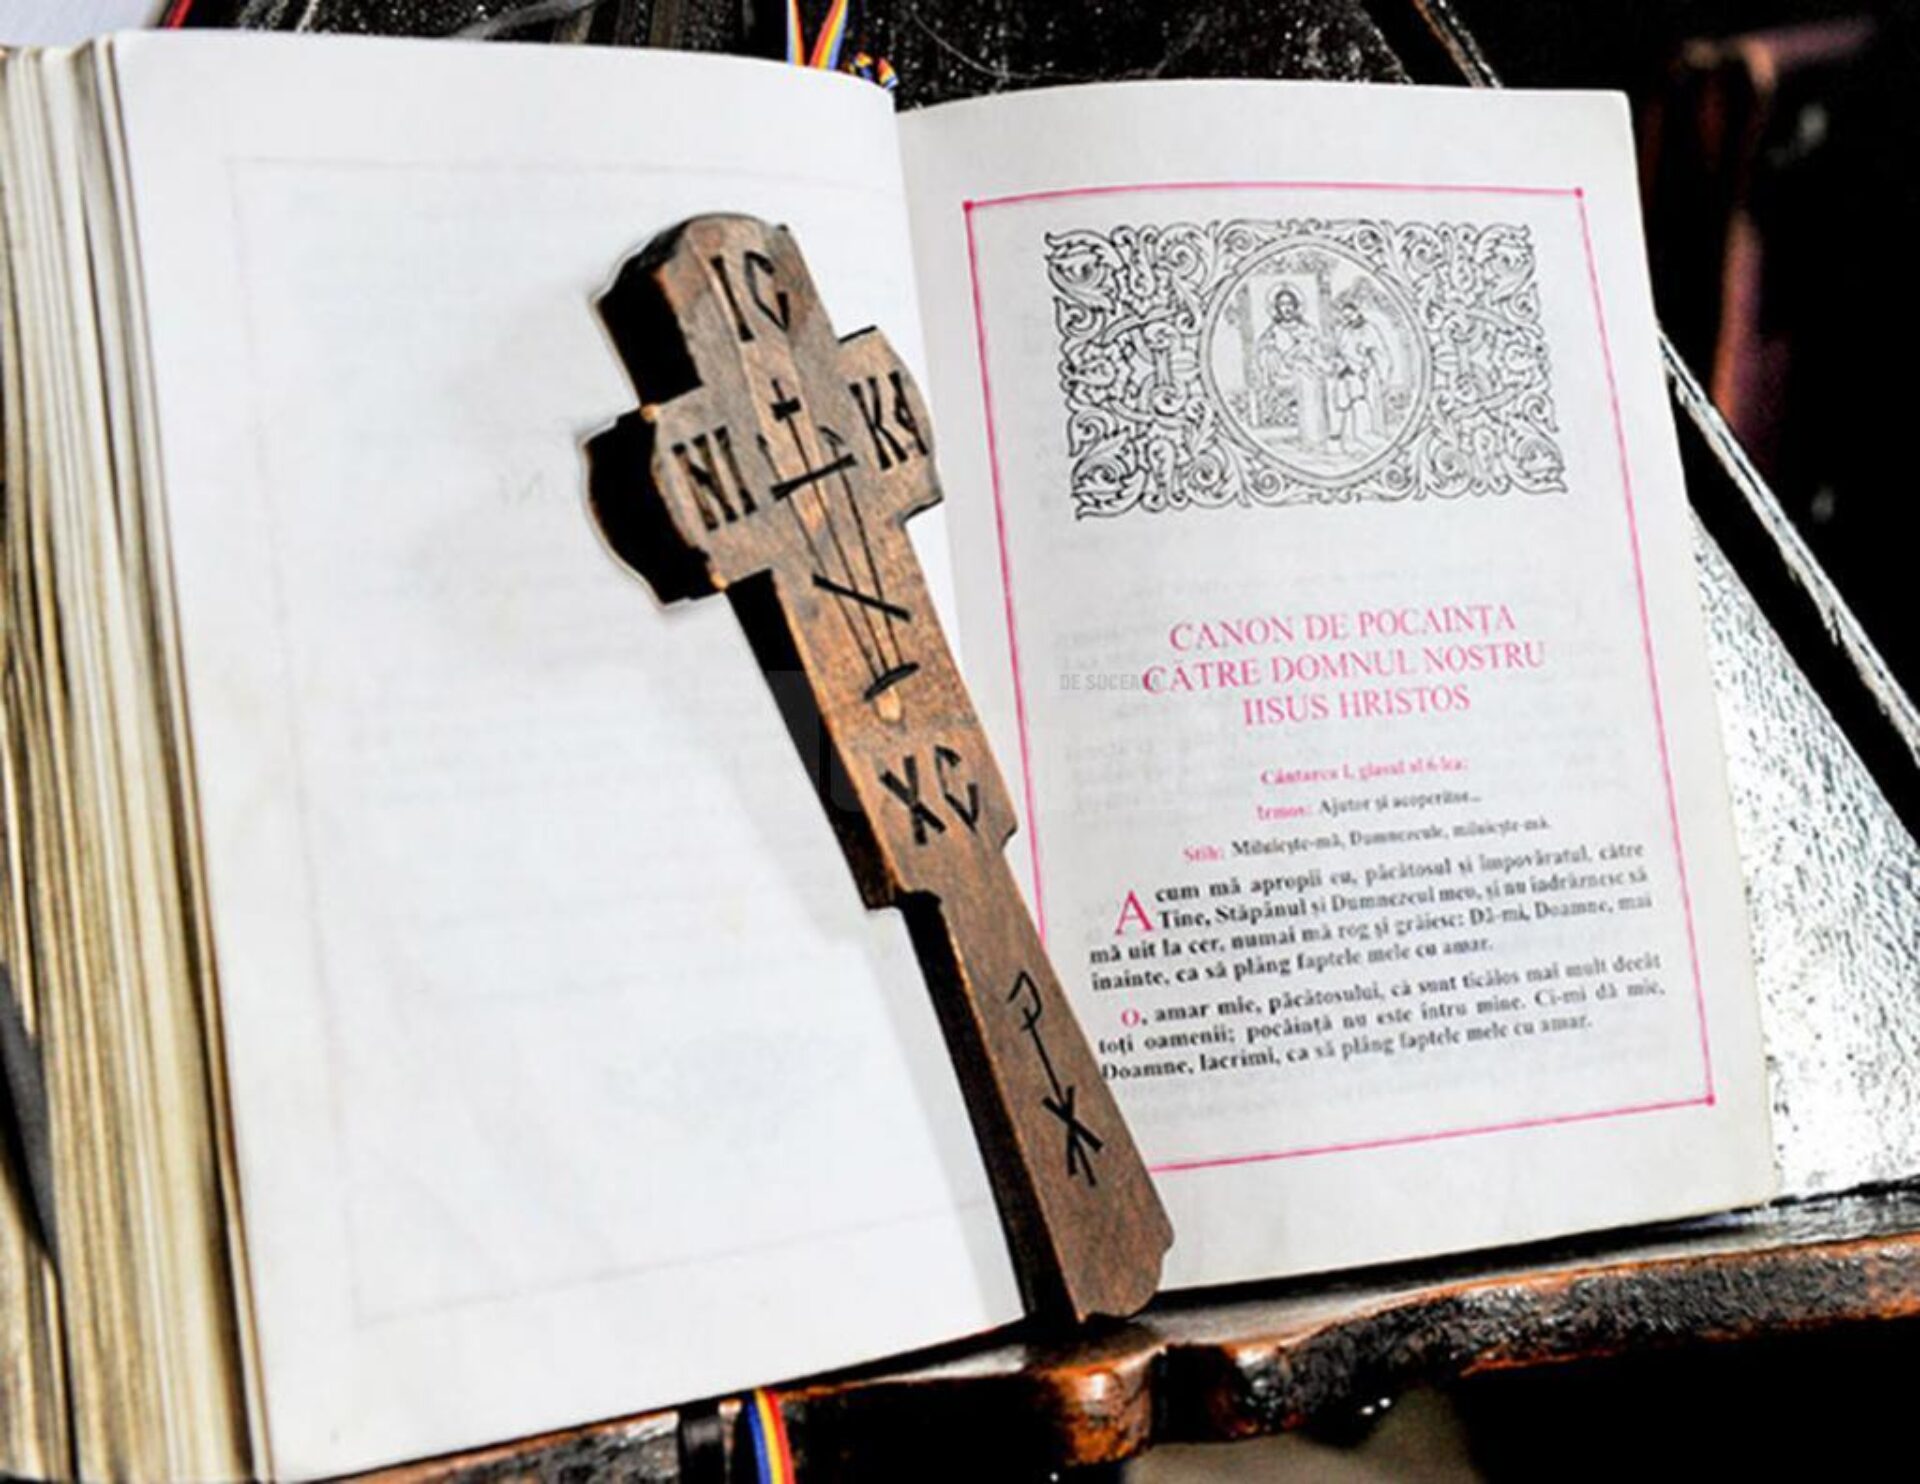 IC
NI KA
XC
CANON DE POCAINȚA
CĂTRE DOMNUL NOSTRU
IISUS HRISTOS
Cântarea I, glasul al 6-lea:
Irmos: Ajutor și acoperitor...
Stih: Miluiește-mă, Dumnezeule, miluiește-mă.
Acum mă apropii eu, păcătosul și împovăratul, către
Tine, Stăpânul și Dumnezeul meu, și nu îndrăznesc să
mă uit la cer, numai mă rog și grăiesc: Dă-mi, Doamne, mai
înainte, ca să plâng faptele mele cu amar.
O, amar mie, păcătosului, că sunt ticălos mai mult decât
toți oamenii; pocăință nu este întru mine. Ci-mi dă mie,
Doamne, lacrimi, ca să plâng faptele mele cu amar.